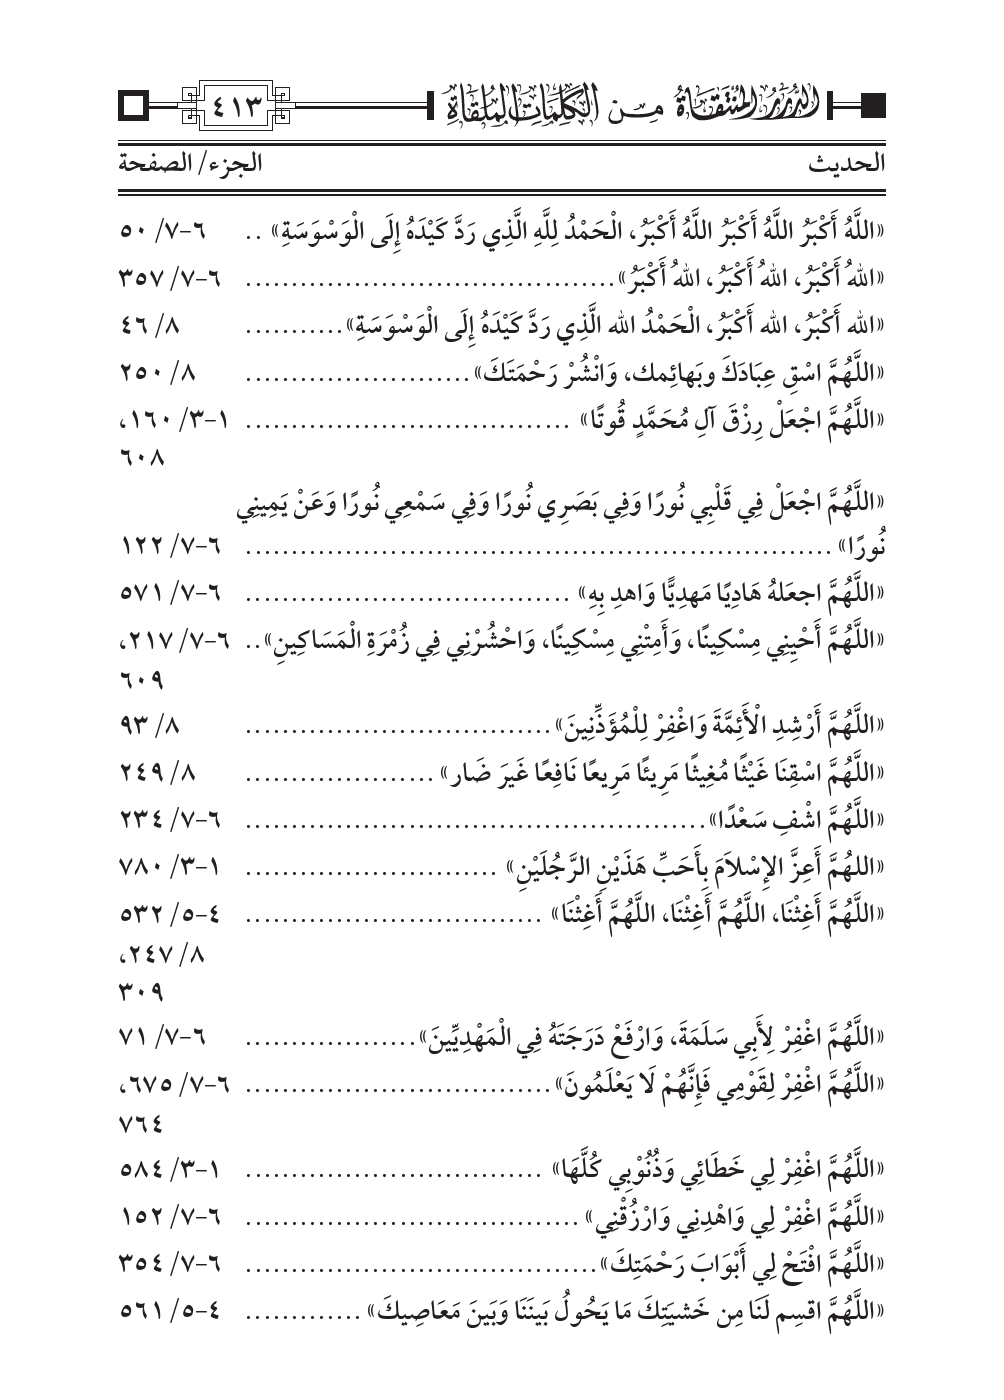 الدُّرَرُ المُنْتَقَاةُ مِن الكَلِمَاتِ المُلْقَاةِ ٤١٣
الحديث الجزء/ الصفحة
«اللَّهُ أَكْبَرُ اللَّهُ أَكْبَرُ اللَّهُ أَكْبَرُ، الْحَمْدُ لِلَّهِ الَّذِي رَدَّ كَيْدَهُ إِلَى الْوَسْوَسَةِ» .. ٦-٧/ ٥٠
«اللهُ أَكْبَرُ، اللهُ أَكْبَرُ، اللهُ أَكْبَرُ» ........................................ ٦-٧/ ٣٥٧
«الله أَكْبَرُ، الله أَكْبَرُ، الْحَمْدُ الله الَّذِي رَدَّ كَيْدَهُ إِلَى الْوَسْوَسَةِ» ........... ٨/ ٤٦
«اللَّهُمَّ اسْقِ عِبَادَكَ وبَهائِمك، وَانْشُرْ رَحْمَتَكَ» ......................... ٨/ ٢٥٠
«اللَّهُمَّ اجْعَلْ رِزْقَ آلِ مُحَمَّدٍ قُوتًا» ................................... ١-٣/ ١٦٠،
٦٠٨
«اللَّهُمَّ اجْعَلْ فِي قَلْبِي نُورًا وَفِي بَصَرِي نُورًا وَفِي سَمْعِي نُورًا وَعَنْ يَمِينِي
نُورًا» ................................................................ ٦-٧/ ١٢٢
«اللَّهُمَّ اجعَلهُ هَادِيًا مَهدِيًّا وَاهدِ بِهِ» ................................... ٦-٧/ ٥٧١
«اللَّهُمَّ أَحْيِنِي مِسْكِينًا، وَأَمِتْنِي مِسْكِينًا، وَاحْشُرْنِي فِي زُمْرَةِ الْمَسَاكِينِ» .. ٦-٧/ ٢١٧،
٦٠٩
«اللَّهُمَّ أَرْشِدِ الْأَئِمَّةَ وَاغْفِرْ لِلْمُؤَذِّنِينَ» ................................. ٨/ ٩٣
«اللَّهُمَّ اسْقِنَا غَيْثًا مُغِيثًا مَرِيئًا مَرِيعًا نَافِعًا غَيرَ ضَار» .................... ٨/ ٢٤٩
«اللَّهُمَّ اشْفِ سَعْدًا» .................................................. ٦-٧/ ٢٣٤
«اللهُمَّ أَعِزَّ الإِسْلاَمَ بِأَحَبِّ هَذَيْنِ الرَّجُلَيْنِ» ........................... ١-٣/ ٧٨٠
«اللَّهُمَّ أَغِثْنَا، اللَّهُمَّ أَغِثْنَا، اللَّهُمَّ أَغِثْنَا» ................................ ٤-٥/ ٥٣٢
٨/ ٢٤٧،
٣٠٩
«اللَّهُمَّ اغْفِرْ لِأَبِي سَلَمَةَ، وَارْفَعْ دَرَجَتَهُ فِي الْمَهْدِيِّينَ» .................. ٦-٧/ ٧١
«اللَّهُمَّ اغْفِرْ لِقَوْمِي فَإِنَّهُمْ لَا يَعْلَمُونَ» ................................. ٦-٧/ ٦٧٥،
٧٦٤
«اللَّهُمَّ اغْفِرْ لِي خَطَائِي وَذُنُوْبِي كُلَّهَا» ................................ ١-٣/ ٥٨٤
«اللَّهُمَّ اغْفِرْ لِي وَاهْدِنِي وَارْزُقْنِي» .................................... ٦-٧/ ١٥٢
«اللَّهُمَّ افْتَحْ لِي أَبْوَابَ رَحْمَتِكَ» ...................................... ٦-٧/ ٣٥٤
«اللَّهُمَّ اقسِم لَنَا مِن خَشيَتِكَ مَا يَحُولُ بَينَنَا وَبَينَ مَعَاصِيكَ» ............. ٤-٥/ ٥٦١